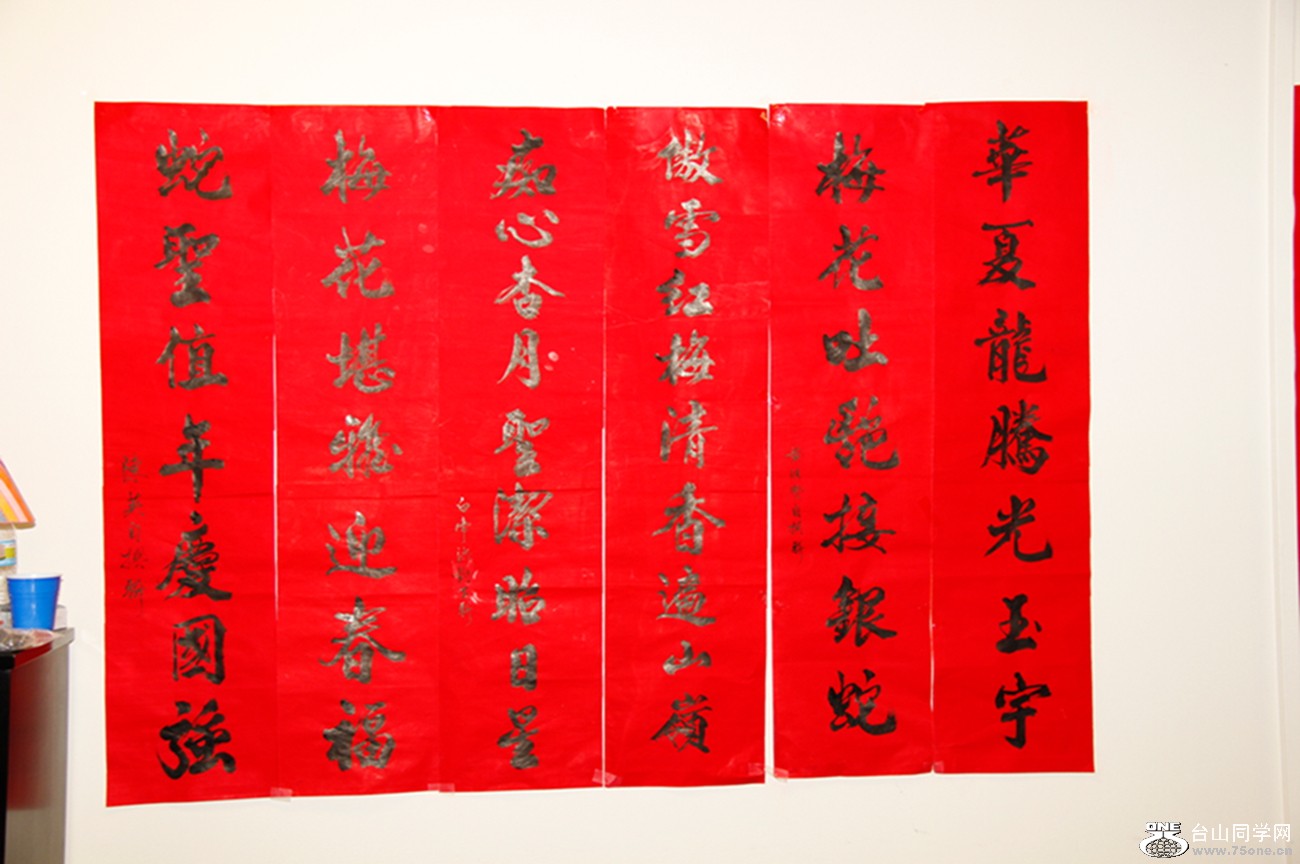 華夏龍騰光玉宇
梅花吐艷接銀蛇
傲雪红梅清香遍山嶺
痴心杏月聖潔昭日星
梅花堪雅迎春福
蛇聖值年慶國強
ONE
台山同学网
www.75one.cn